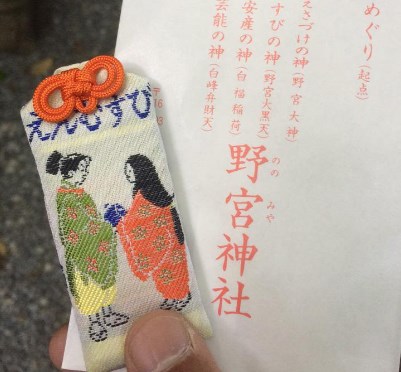 えんむすび
めぐり(起点)
えさづけの神(野宮大神)
すびの神(野宮大黒天)
安産の神(白福稲荷)
芸能の神(白峰弁財天)
野宮神社
ののみや